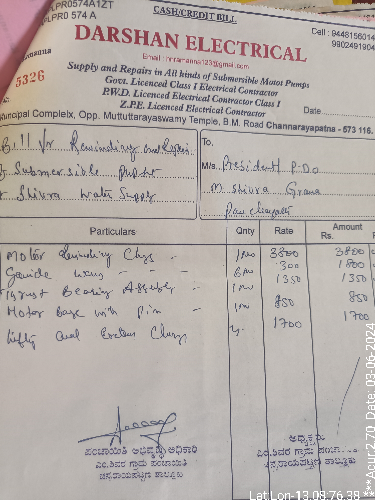 LPR0574A1ZT
LPR0 574 A
CASH/CREDIT BILL
Cell : 9448156014
9902491904
DARSHAN ELECTRICAL
5326
Supply and Repairs in All kinds of Submersible Motot Pumps
Govt. Licenced Class I Electrical Contractor
P.W.D. Licenced Electrical Contractor Class I
Z.P.E. Licenced Electrical Contractor
Date
Municipal Complelx, Opp. Muttuttarayaswamy Temple, B.M. Road Channarayapatna - 573 116.
Bill for Rewinding and
Submersible
Shivra Water Supply
To,
M/s. President P.D.O
M. Shivra Grama
Particulars Qnty Rate Amount
Rs.
Motor Rewinding Chgs 1 No 3800 3800
6 No 300 1800
Thrust Bearing 1 No 1350 1350
Motor Base with Pin 1 No 850 850
Lifting and Chgs 1700 1700
ಪಂಚಾಯಿತಿ ಅಭಿವೃದ್ಧಿ ಅಧಿಕಾರಿ
ಎಂ.ಶಿವರ ಗ್ರಾಮ ಪಂಚಾಯಿತಿ
ಚನ್ನರಾಯಪಟ್ಟಣ ತಾಲ್ಲೂಕು
ಅಧ್ಯಕ್ಷರು
ಎಂ.ಶಿವರ ಗ್ರಾಮ
ಚನ್ನರಾಯಪಟ್ಟಣ ತಾಲ್ಲೂಕು
Lat Lon-13.0
Acur:2.70 Date:03-06-2024